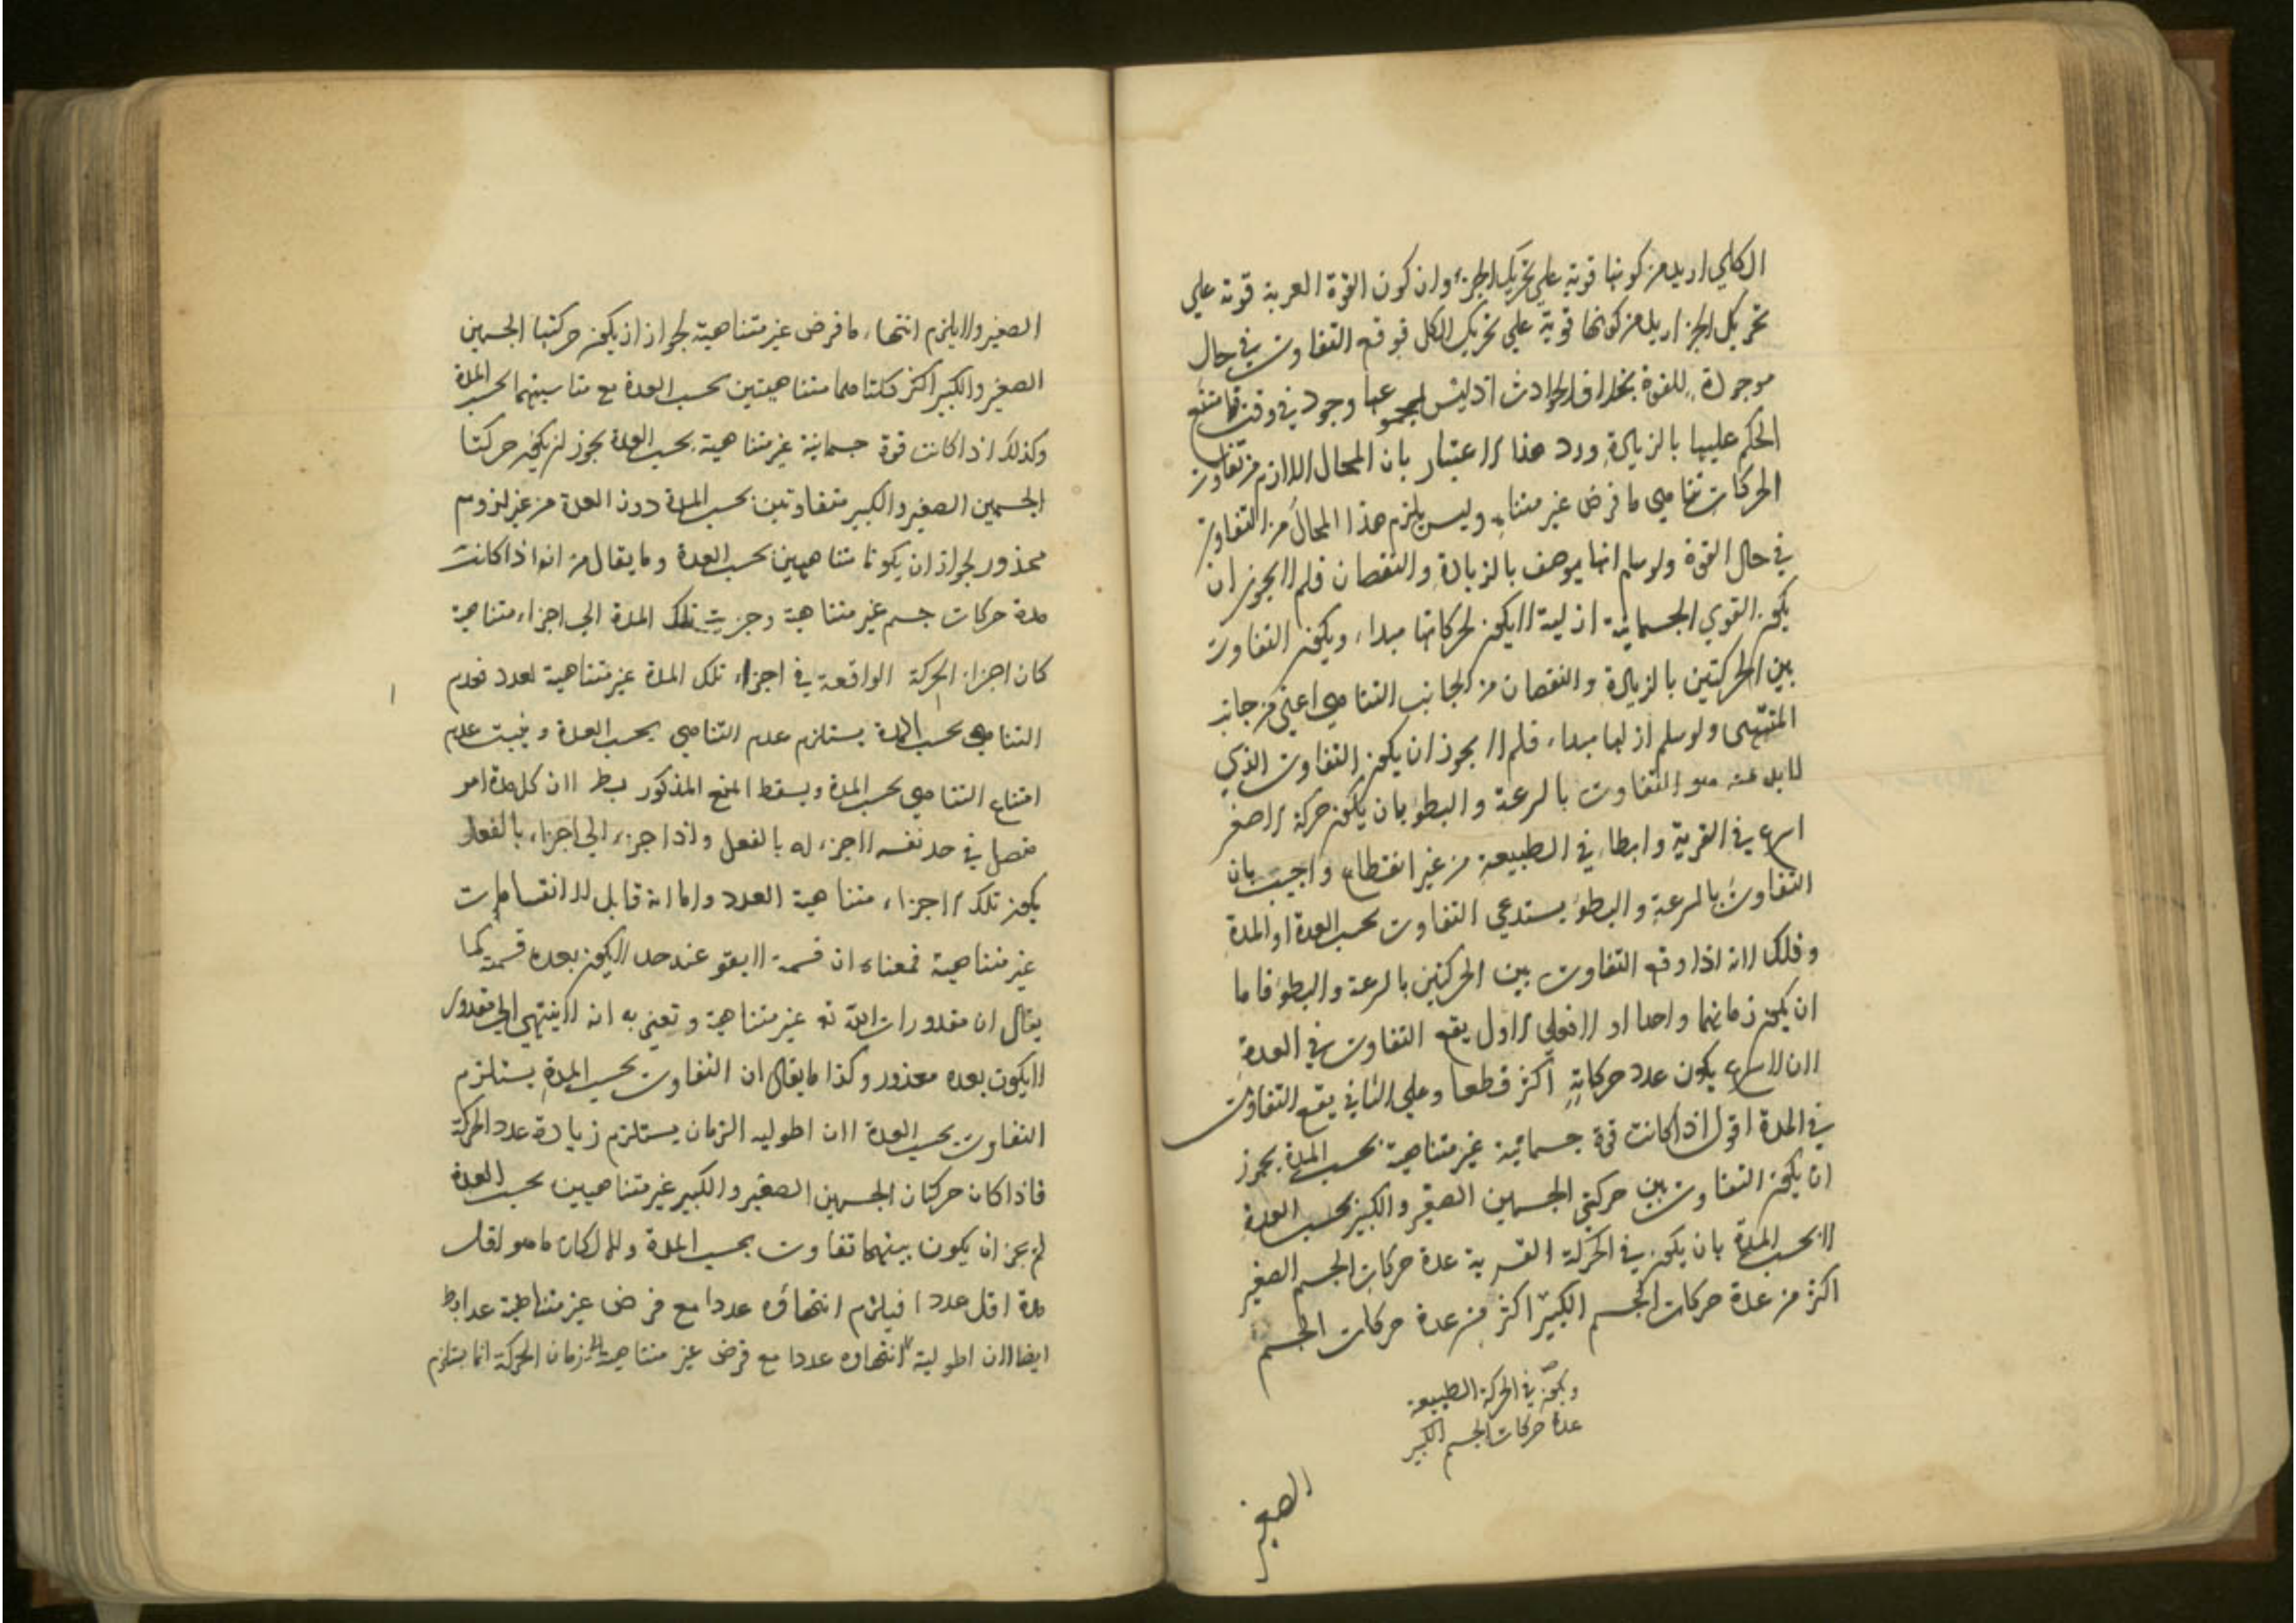 الكلي ازيد من كونها قوية علي تحريك الجزء وان كون القوة العربة قوية علي
تحريك الجز ازيد من كونها قوية علي تحريك الكل فوقع التفاوت في حال
موجودة للقوة بخلاف الحوادث اذ ليس لمجموعها وجود في وقت ما فامتنع
الحكم عليها بالزيادة ورد هذا الاعتبار بان المحال اللازم من تفاوت
الحركات تناهي ما فرض غير متناه وليس يلزم هذا المحال من التفاوت
في حال القوة ولو سلم انها يوصف بالزيادة والنقصان فلم لا يجوز ان
يكون القوي الجسمانية ازلية لا يكون لحركاتها مبداء ويكون التفاوت
بين الحركتين بالزيادة والنقصان من الجانب التناهي اعني من جانب
المنتهى ولو سلم ان لها مبداء فلم لا يجوز ان يكون التفاوت الذي
لا بد منه هو التفاوت بالسرعة والبطؤ بان يكون حركة الاصغر
اسرع في القرية وابطاء في الطبيعة من غير انقطاع واجيب بان
التفاوت بالسرعة والبطؤ يستدعي التفاوت بحسب العدة او المدة
وذلك لانه اذا وقع التفاوت بين الحركتين بالسرعة والبطؤ فاما
ان يكون زمانهما واحدا او لا فعلي الاول يقع التفاوت في العدة
لان الاسرع يكون عدد حركاته اكثر قطعا وعلي الثاني يقع التفاوت
في المدة اقول اذا كانت قوة جسمانية غير متناهية بحسب المدة يجوز
ان يكون التفاوت بين حركتي الجسمين الصغير والكبير بحسب العدة
لا بحسب المدة بان يكون في الحركة القسرية عدة حركات الجسم الصغير
اكثر من عدة حركات الجسم الكبير اكثر من عدة حركات الجسم
ويكون في الحركة الطبيعة
عدة حركات الجسم الكبير
الصغير
الصغير ولا يلزم انتهاء ما فرض غير متناهية لجواز ان يكون حركتها الجسمين
الصغير والكبير اكثر كلتاهما متناهيتين بحسب العدة مع تناسبهما بحسب المدة
وكذلك اذا كانت قوة جسمانية غير متناهية بحسب العدة يجوز ان يكون حركتا
الجسمين الصغير والكبير متفاوتين بحسب المدة دون العدة من غير لزوم
محذور لجواز ان يكونا متناهيين بحسب العدة وما يقال من انه اذا كانت
مدة حركات جسم غير متناهية وجزيت تلك المدة الي اجزاء متناهية
كان اجزاء الحركة الواقعة في اجزاء تلك المدة غير متناهية لعدد فعدم
التناهي بحسب المدة يستلزم عدم التناهي بحسب العدة ويثبت عدم
امتناع التناهي بحسب المدة ويسقط المنع المذكور بط لان كل مدة امر
متصل في حد نفسه لا جزء له بالفعل واذا جزء الي اجزاء بالفعل
يكون تلك الاجزاء متناهية العدد واما انه قابل للانقسامات
غير متناهية فمعناه ان قسمة لا يقو عند حد لا يكون بعده قسمة كما
يقال ان مقدورات الله تع غير متناهية وتعني به انه لا ينتهي الي مقدور
لا يكون بعده معذور وكذا ما يقال ان التفاوت بحسب المدة يستلزم
التفاوت بحسب العدة لان اطولية الزمان يستلزم زيادة عدد الحركة
فاذا كان حركتان الجسمين الصغير والكبير غير متناهيين بحسب العدة
لم يجز ان يكون بينهما تفاوت بحسب المدة والا لكان ما هو لقل
مدة اقل عددا فيلزم انتهاؤه عددا مع فرض غير متناهية عدا بط
ايضا لان اطولية انتهاوه عددا مع فرض غير متناهية زمان الحركة انما يستلزم